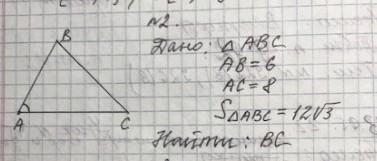 №2.
Дано: △ABC
AB=6
AC=8
S△ABC=12√3
Найти: BC
B
A
C